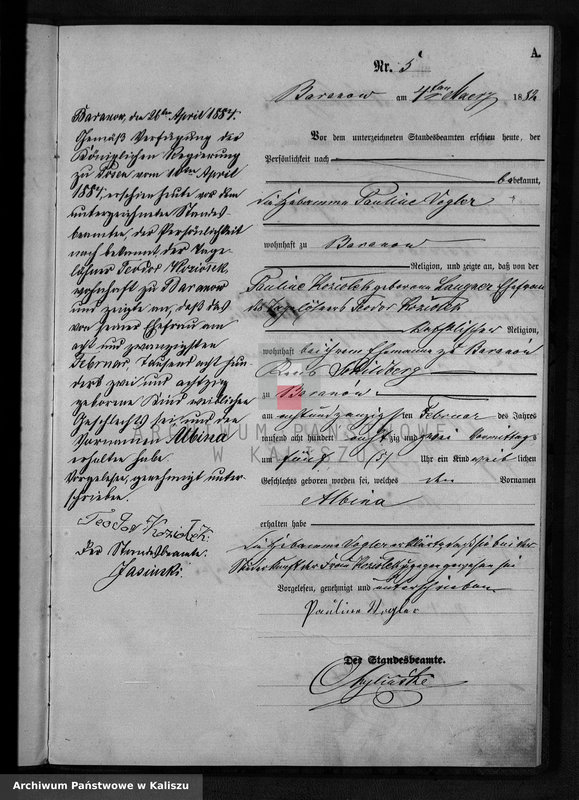 A.
Nr. 5
Baranow am 4ten Maerz 1882
Vor dem unterzeichneten Standesbeamten erschien heute, der
Persönlichkeit nach
bekannt,
die Hebamme Pauline Vogler
wohnhaft zu Baranow
Religion, und zeigte an, daß von der
Pauline Koziolek geborene Ehefrau
des Tagelöhners Teodor Koziolek
katholischer Religion,
wohnhaft bei ihrem Ehemanne zu Baranow
Kreis Schildberg
zu Baranow
am achtundzwanzigsten Februar des Jahres
tausend acht hundert achtzig und zwei Vormittags
um fünf (5) Uhr ein Kind weiblichen
Geschlechts geboren worden sei, welches den Vornamen
Albina
erhalten habe
Die Hebamme Vogler erklärte daß sie bei der
Niederkunft der Frau Koziolek zugegen gewesen sei
Vorgelesen, genehmigt und unterschrieben
Pauline Vogler
Der Standesbeamte.
Baranow, den 26ten April 1884.
Gemäß Verfügung der
Königlichen Regierung
zu Posen vom 10ten April
1884, erschien heute vor dem
unterzeichneten Standes
beamten, der Persönlichkeit
nach bekannt, der Tage
löhner Teodor Koziolek,
wohnhaft zu Baranow
und zeigte an, daß das
von seiner Ehefrau am
acht und zwanzigsten
Februar Tausend acht hun
derts zwei und achtzig
geborene Kind weiblichen
Geschlechts sei und den
Vornamen Albina
erhalten habe.
Vorgelesen, genehmigt unter
schrieben.
Teodor Koziolek
Der Standesbeamte.
Jasinski
ARCHIWUM PAŃSTWOWE
W KALISZU
Archiwum Państwowe w Kaliszu